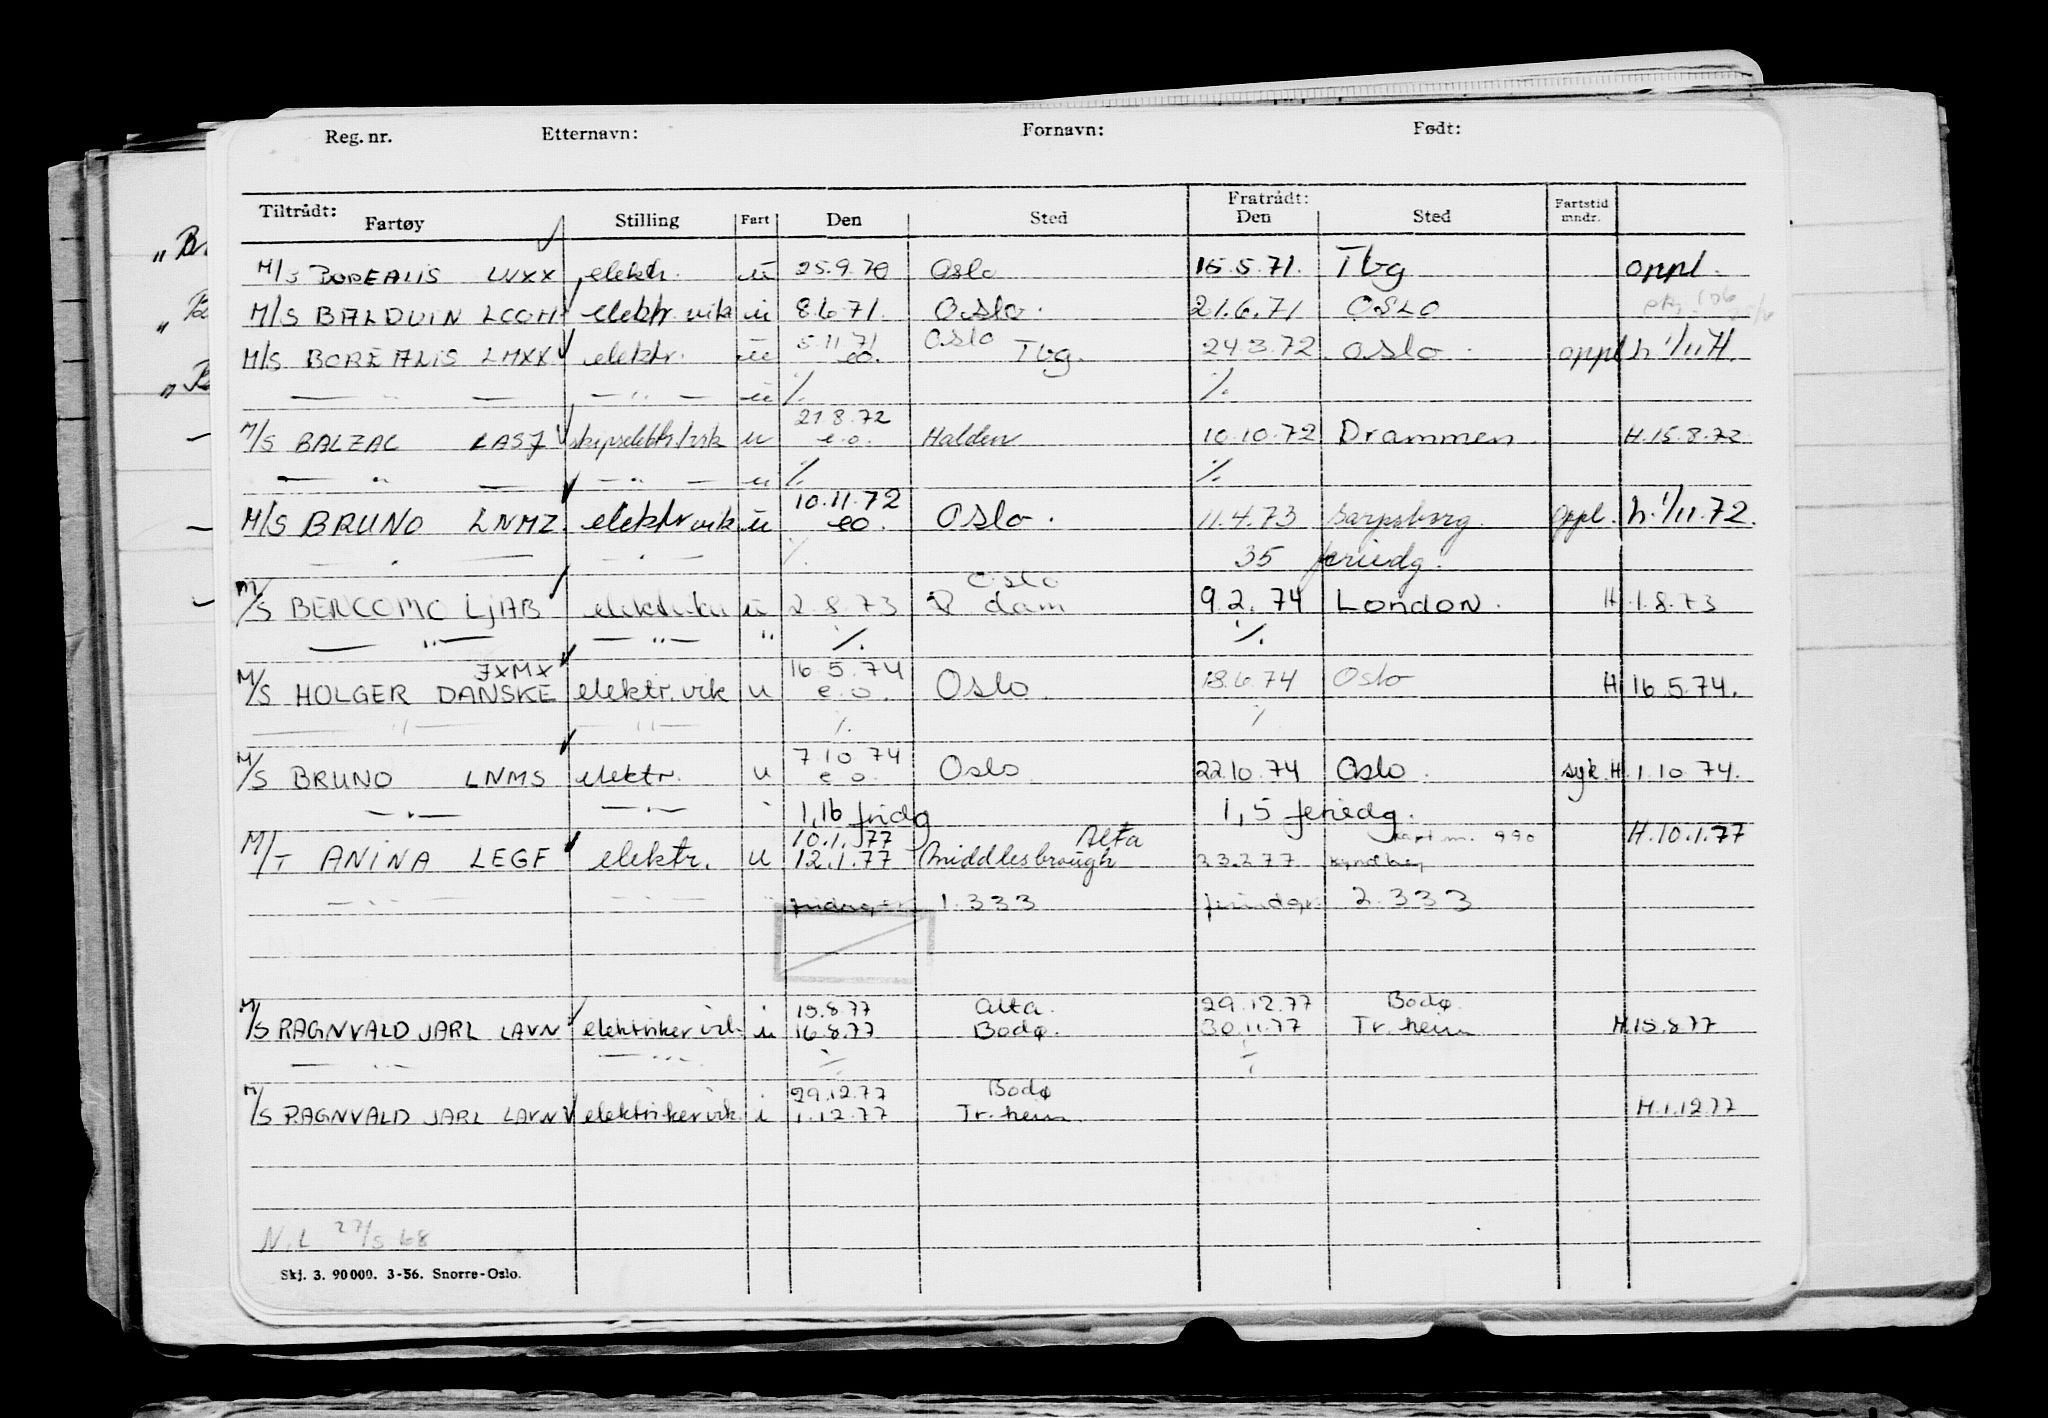 Reg. nr. Etternavn: Fornavn: Født:
Tiltrådt: Fratrådt:
Fartøy Stilling Fart Den Sted Den Sted Fartstid mndr.
M/S BOREALIS elektr. u 25.9.70 Oslo 15.5.71. Tbg oppl.
M/S BALDUIN LCOH elektr. vik u 8.6.71. Oslo. 21.6.71 OSLO
5.11.71 Oslo
M/S BOREALIS LMXX elektr. u eo. Tbg. 24.3.72 Oslo. oppl h. 1/11 71.
— " — — " — u % %
21.8.72
M/S BALZAC LASJ skipselektr/vik u e.o. Halden 10.10.72 Drammen H.15.8.72
— " — — " — u % %
10.11.72
M/S BRUNO LNMZ. elektr vik u eo Oslo. 11.4.73 Sarpsborg. oppl. h. 1/11.72.
— " — — " — % 35 feriedg.
Oslo
M/S BENCOMO LJAB elektriker u 2.8.73 R dam 9.2.74 London. H.1.8.73
— " — — " — " % %
JXMX 16.5.74
M/S HOLGER DANSKE elektr. vik u e.o. Oslo. 18.6.74 Oslo H 16.5.74.
— " — — " — % %
7.10.74
M/S BRUNO LNMS elektr. u e.o. Oslo 22.10.74 Oslo. syk. H.1.10.74.
— " — — " — " 1,16 fridg 1,5 feriedg.
10.1.77 Alta H.10.1.77
M/T ANINA LEGF elektr. u 12.1.77 Middlesbrough 23.2.77
— " — — " — 1.333 feriedgr. 2.333
15.8.77 Alta. 29.12.77 Bodø.
M/S RAGNVALD JARL LAVN elektriker vik. u 16.8.77 Bodø. 30.11.77 Tr.heim H.15.8.77
— " — — " — % %
29.12.77 Bodø
M/S RAGNVALD JARL LAVN elektriker vik. i 1.12.77 Tr.heim H.1.12.77
N.L 27/5 68
Skj. 3. 90000. 3-56. Snorre-Oslo.